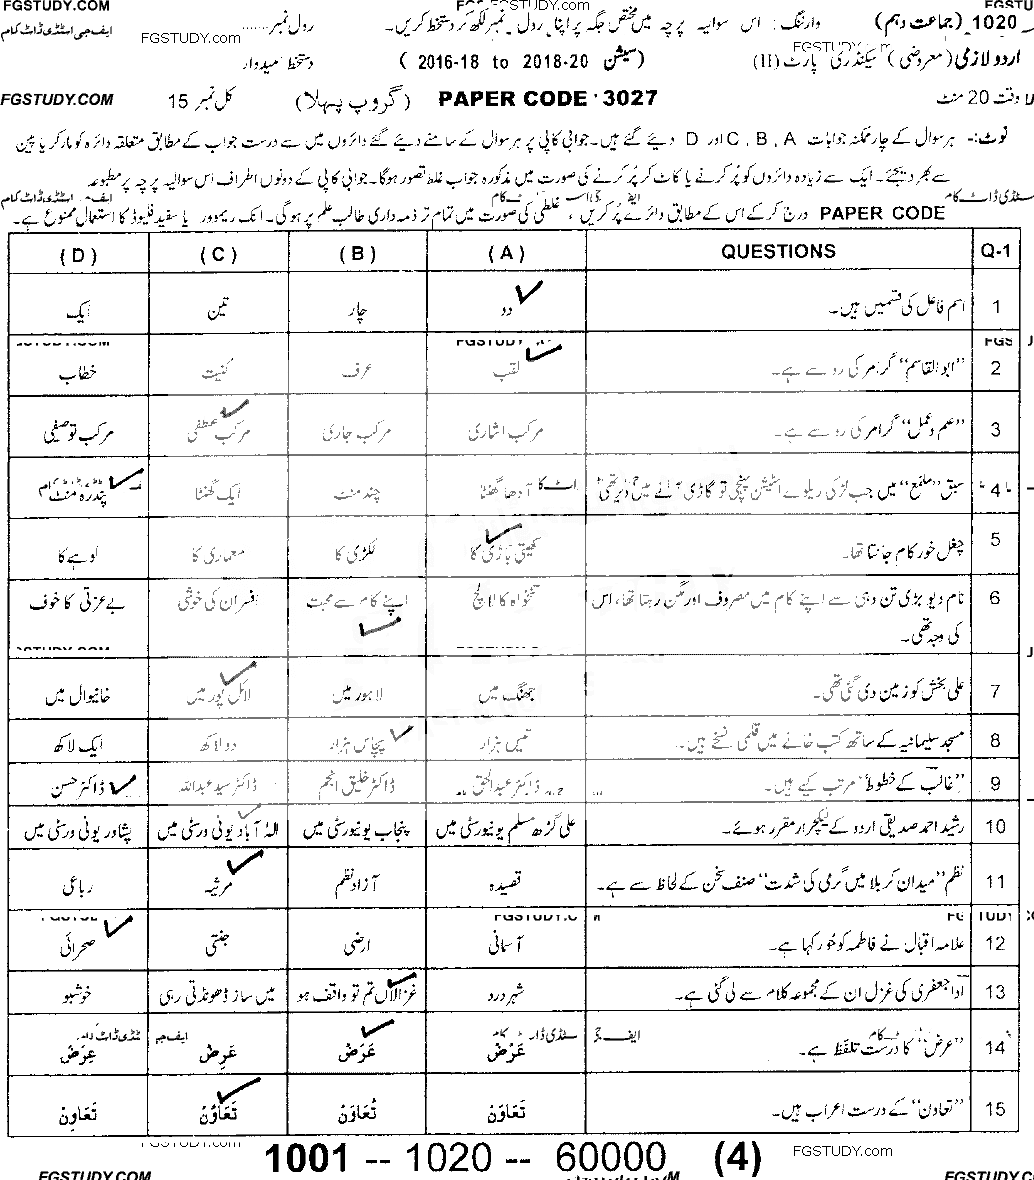 FGSTUDY.COM FGSTUDY.com FGSTU
1020 (جماعت دہم) وارننگ: اس سوالیہ پرچہ میں مختص جگہ پر اپنا رول نمبر لکھ کر دستخط کریں۔ رول نمبر...... FGSTUDY.com ایف جی اسٹڈی ڈاٹ کام
اردو لازمی (معروضی) سیکنڈری پارٹ (II) (سیشن 2016-18 to 2018-20) دستخط امیدوار
وقت 20 منٹ PAPER CODE 3027 (گروپ پہلا) کل نمبر 15 FGSTUDY.COM
نوٹ:- ہر سوال کے چار ممکنہ جوابات A , B , C اور D دیئے گئے ہیں۔ جوابی کاپی پر ہر سوال کے سامنے دیئے گئے دائروں میں سے درست جواب کے مطابق متعلقہ دائرہ کو مارکر یا پین
سے بھر دیجئے۔ ایک سے زیادہ دائروں کو پُر کرنے یا کاٹ کر پُر کرنے کی صورت میں مذکورہ جواب غلط تصور ہوگا۔ جوابی کاپی کے دونوں اطراف اس سوالیہ پرچہ پر مطبوعہ
PAPER CODE درج کر کے اس کے مطابق دائرے پُر کریں، غلطی کی صورت میں تمام تر ذمہ داری طالب علم پر ہوگی۔ انک ریموور یا سفید فلیوڈ کا استعمال ممنوع ہے۔
Q-1 QUESTIONS (A) (B) (C) (D)
1 اسم فاعل کی قسمیں ہیں۔ دو چار تین ایک
2 ’’ابوالقاسم‘‘ گرامر کی رو سے ہے۔ لقب عرف کنیت خطاب
3 ’’علم و عمل‘‘ گرامر کی رو سے ہے۔ مرکب اشاری مرکب جاری مرکب عطفی مرکب توصیفی
4 سبق ’’ملمع‘‘ میں جب لڑکی ریلوے اسٹیشن پہنچی تو گاڑی آنے میں دیر تھی آدھا گھنٹا چند منٹ ایک گھنٹا پندرہ منٹ
5 چغل خور کام جانتا تھا۔ کھیتی باڑی کا لکڑی کا معماری کا لوہے کا
6 نام دیو بڑی تن دہی سے اپنے کام میں مصروف اور مگن رہتا تھا، اس تنخواہ کا لالچ اپنے کام سے محبت افسران کی خوشی بے عزتی کا خوف
کی وجہ تھی۔
7 علی بخش کو زمین دی گئی تھی۔ جھنگ میں لاہور میں لائل پور میں خانیوال میں
8 مسجد سلیمانیہ کے ساتھ کتب خانے میں قلمی نسخے ہیں۔ تیس ہزار پچاس ہزار دو لاکھ ایک لاکھ
9 ’’غالب کے خطوط‘‘ مرتب کیے ہیں۔ ڈاکٹر عبدالحق ڈاکٹر خلیق انجم ڈاکٹر سید عبداللہ ڈاکٹر حسن
10 رشید احمد صدیقی اردو کے لیکچرار مقرر ہوئے۔ علی گڑھ مسلم یونیورسٹی میں پنجاب یونیورسٹی میں الہٰ آباد یونی ورسٹی میں پشاور یونی ورسٹی میں
11 نظم ’’میدان کربلا میں گرمی کی شدت‘‘ صنف سخن کے لحاظ سے ہے۔ قصیدہ آزاد نظم مرثیہ رباعی
12 علامہ اقبال نے فاطمہ کو حُور کہا ہے۔ آسمانی ارضی جنتی صحرائی
13 ادا جعفری کی غزل ان کے مجموعہ کلام سے لی گئی ہے۔ شہر درد غزالاں تم تو واقف ہو میں ساز ڈھونڈتی رہی خوشبو
14 ’’عرض‘‘ کا درست تلفظ ہے۔ عَرْضْ عَرَضْ عَرِضْ عِرَضْ
15 ’’تعاون‘‘ کے درست اعراب ہیں۔ تَعَاوَنْ تُعَاوَنْ تَعَاوُنْ تَعَاوِنْ
1001 -- 1020 -- 60000 (4) FGSTUDY.com
FGSTUDY.COM FGSTUDY.COM